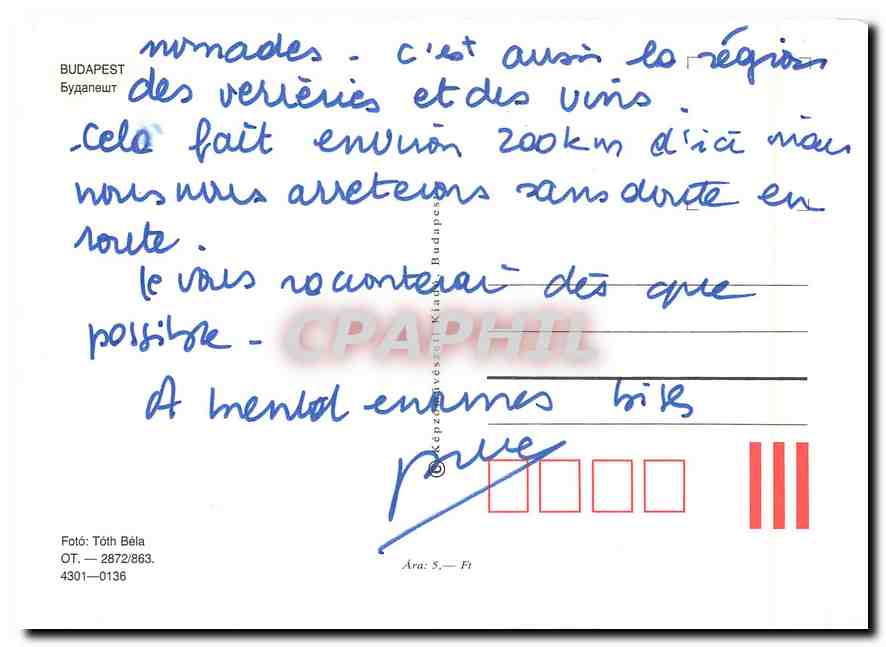 nomades - c'est aussi la région
BUDAPEST
Будапешт
des verreries et des vins.
Cela fait environ 200km d'ici mais
nous nous arreterons sans doute en
route.
Je vous raconterai dès que
possible -
A bientot enormes bises
© Képzőművészeti Kiadó, Budapest
CPAPHIL
Fotó: Tóth Béla
OT. — 2872/863.
4301—0136
Ára: 5,— Ft